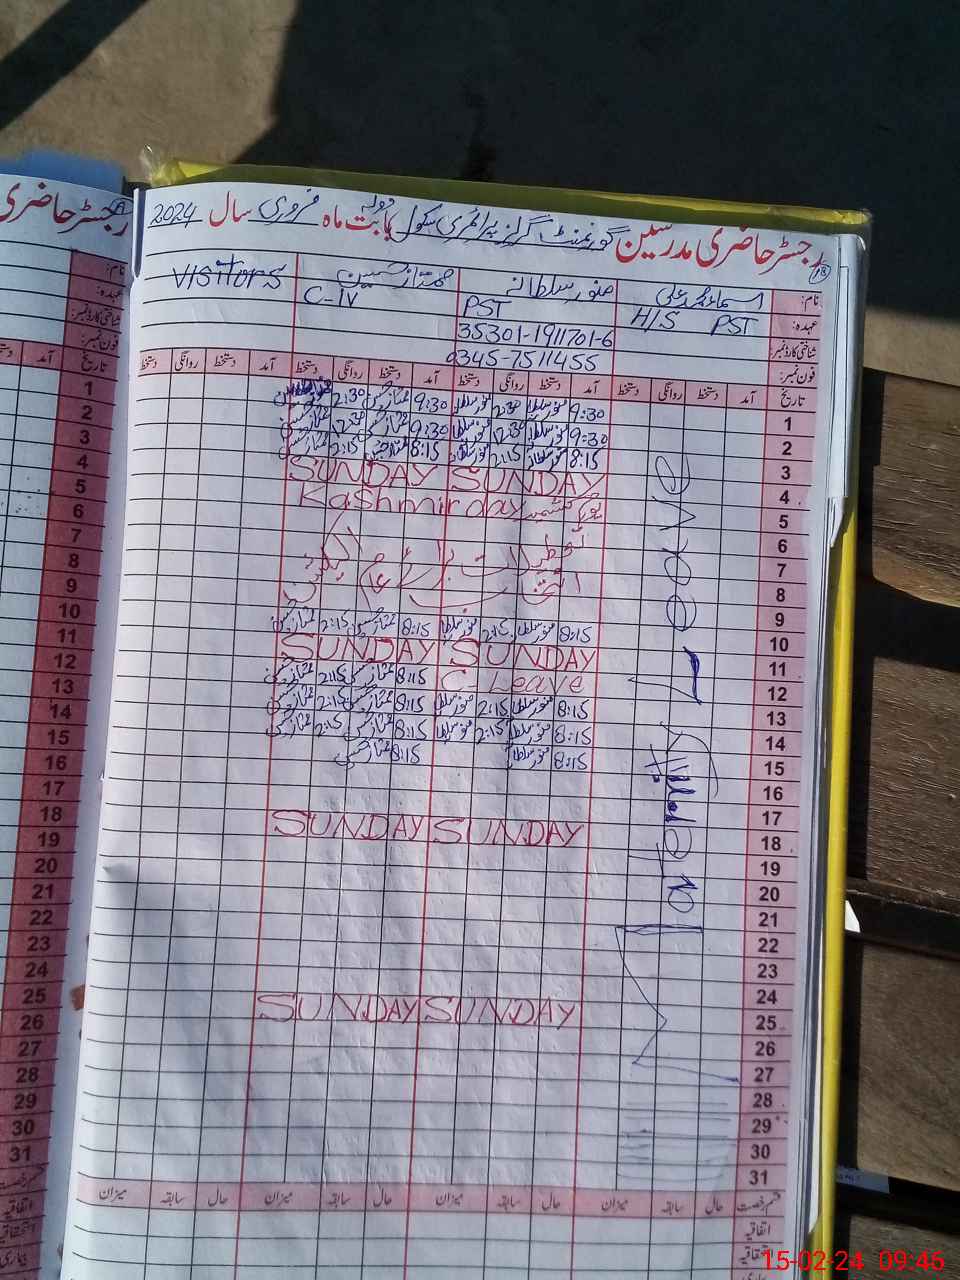 رجسٹر حاضری مدرسین گورنمنٹ گرلز پرائمری سکول بابت ماہ فروری سال 2024
رجسٹر حاضری
نام:
عہدہ:
شناختی کارڈ نمبر:
فون نمبر:
H/S PST
منور سلطانہ
PST
35301-1911701-6
0345-7511455
ممتاز حسین
C-IV
VISITORS
تاریخ آمد دستخط روانگی دستخط آمد دستخط روانگی دستخط آمد دستخط روانگی دستخط آمد دستخط روانگی دستخط
1 9:30 منور سلطانہ 2:30 منور سلطانہ 9:30 ممتاز حسین 2:30
2 9:30 منور سلطانہ 12:30 منور سلطانہ 9:30 ممتاز حسین 12:30 ممتاز حسین
3 8:15 منور سلطانہ 2:15 منور سلطانہ 8:15 ممتاز حسین 2:15 ممتاز حسین
4 SUNDAY SUNDAY
5 یوم کشمیر Kashmir day
6
7 تعطیلات برائے عام الیکشن
8 انتخاب
9
10 8:15 منور سلطانہ 2:15 منور سلطانہ 8:15 ممتاز حسین 2:15 ممتاز حسین
11 SUNDAY SUNDAY
12 C-Leave 8:15 ممتاز حسین 2:15 ممتاز حسین
13 8:15 منور سلطانہ 2:15 منور سلطانہ 8:15 ممتاز حسین 2:15 ممتاز حسین
14 8:15 منور سلطانہ 2:15 منور سلطانہ 8:15 ممتاز حسین 2:15 ممتاز حسین
15 8:15 منور سلطانہ 8:15 ممتاز حسین
16
17
18 SUNDAY SUNDAY
19
20
21
22
23
24
25 SUNDAY SUNDAY
26
27
28
29
30
31
Maternity Leave
قسم رخصت حال سابقہ میزان حال سابقہ میزان حال سابقہ میزان حال سابقہ میزان
اتفاقیہ
استحقاقیہ
بیماری
نام:
عہدہ:
شناختی کارڈ نمبر:
فون نمبر:
تاریخ آمد
1
2
3
4
5
6
7
8
9
10
11
12
13
14
15
16
17
18
19
20
21
22
23
24
25
26
27
28
29
30
31
قسم رخصت
اتفاقیہ
استحقاقیہ
بیماری
15-02-24 09:46